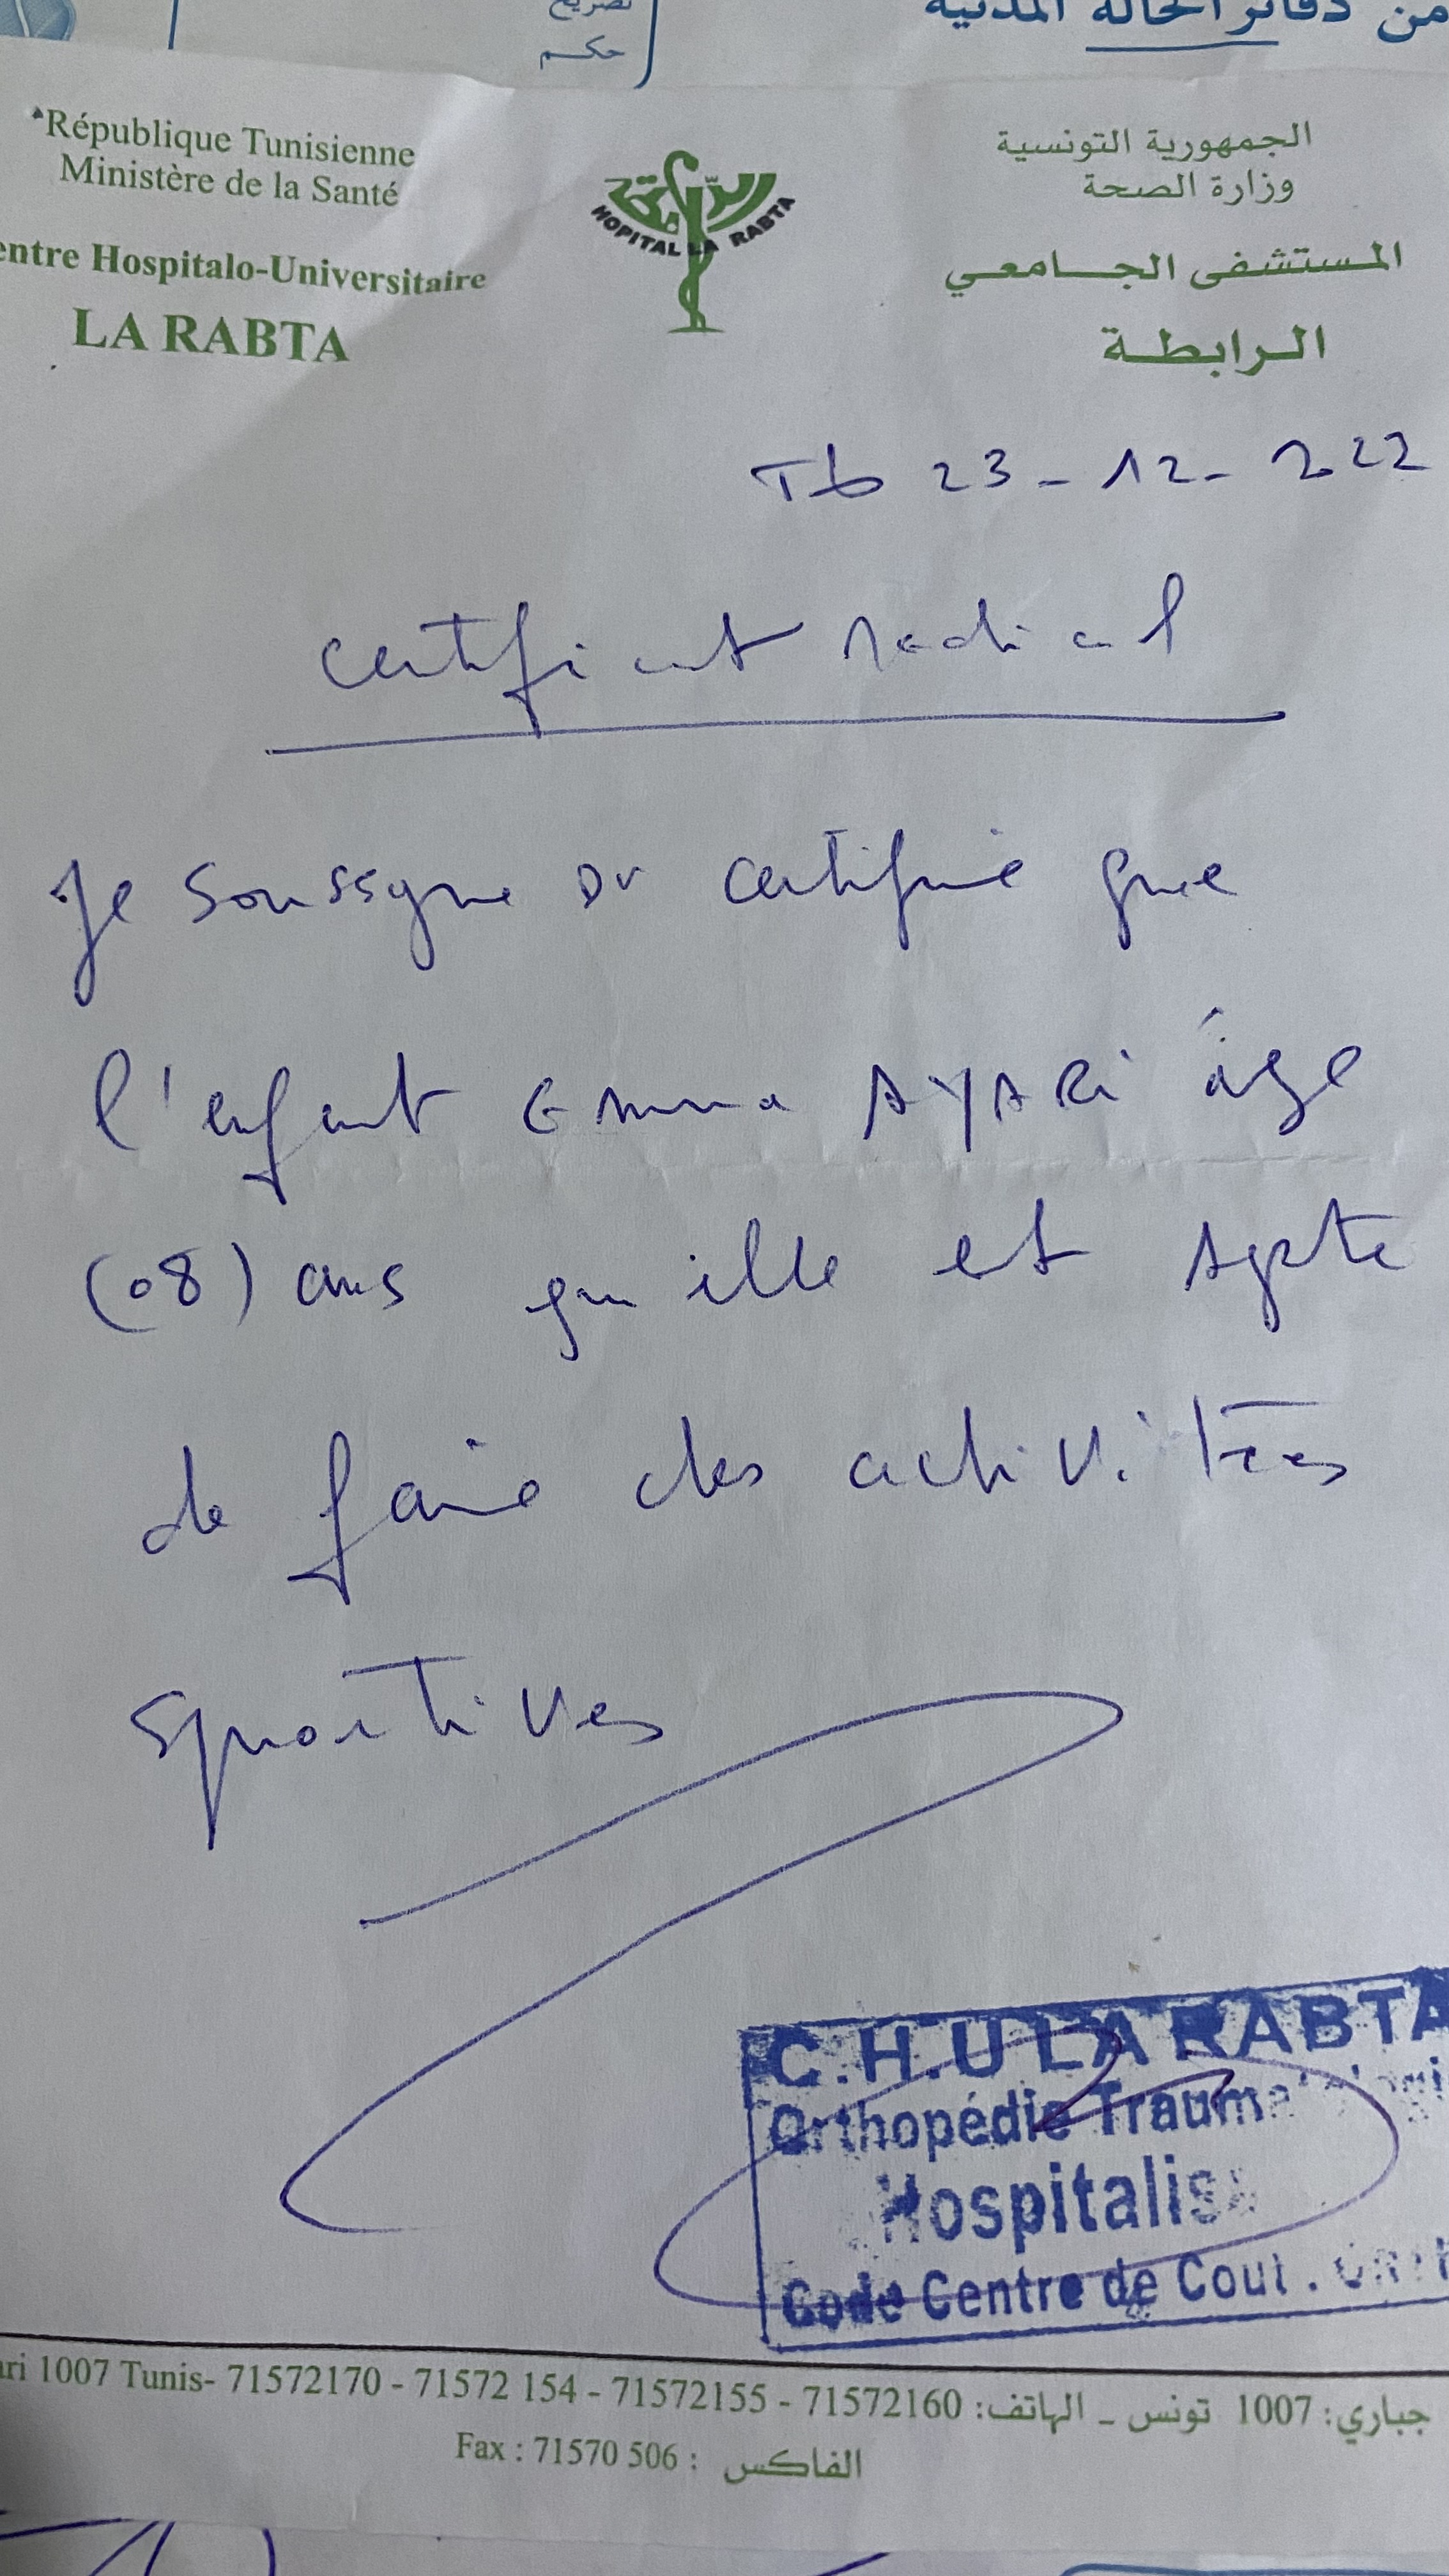 من دفاتر الحالة المدنية
تصريح
حكم
République Tunisienne
Ministère de la Santé
entre Hospitalo-Universitaire
LA RABTA
الرابطة
HOPITAL LA RABTA
الجمهورية التونسية
وزارة الصحة
المستشفى الجـــامعـي
الـرابطـة
Tb 23-12-2022
Certificat Medical
Je soussgne Dr certifie que
l'enfant Emna AYARi âge
(08) ans qu'ille est Apte
de faire des activitées
sportives
C.H.U LA RABTA
Orthopédie
Code Centre de
ari 1007 Tunis- 71572170 - 71572 154 - 71572155 - 71572160 :جباري: 1007 تونس ـ الهاتف
Fax : 71570 506 : الفاكس